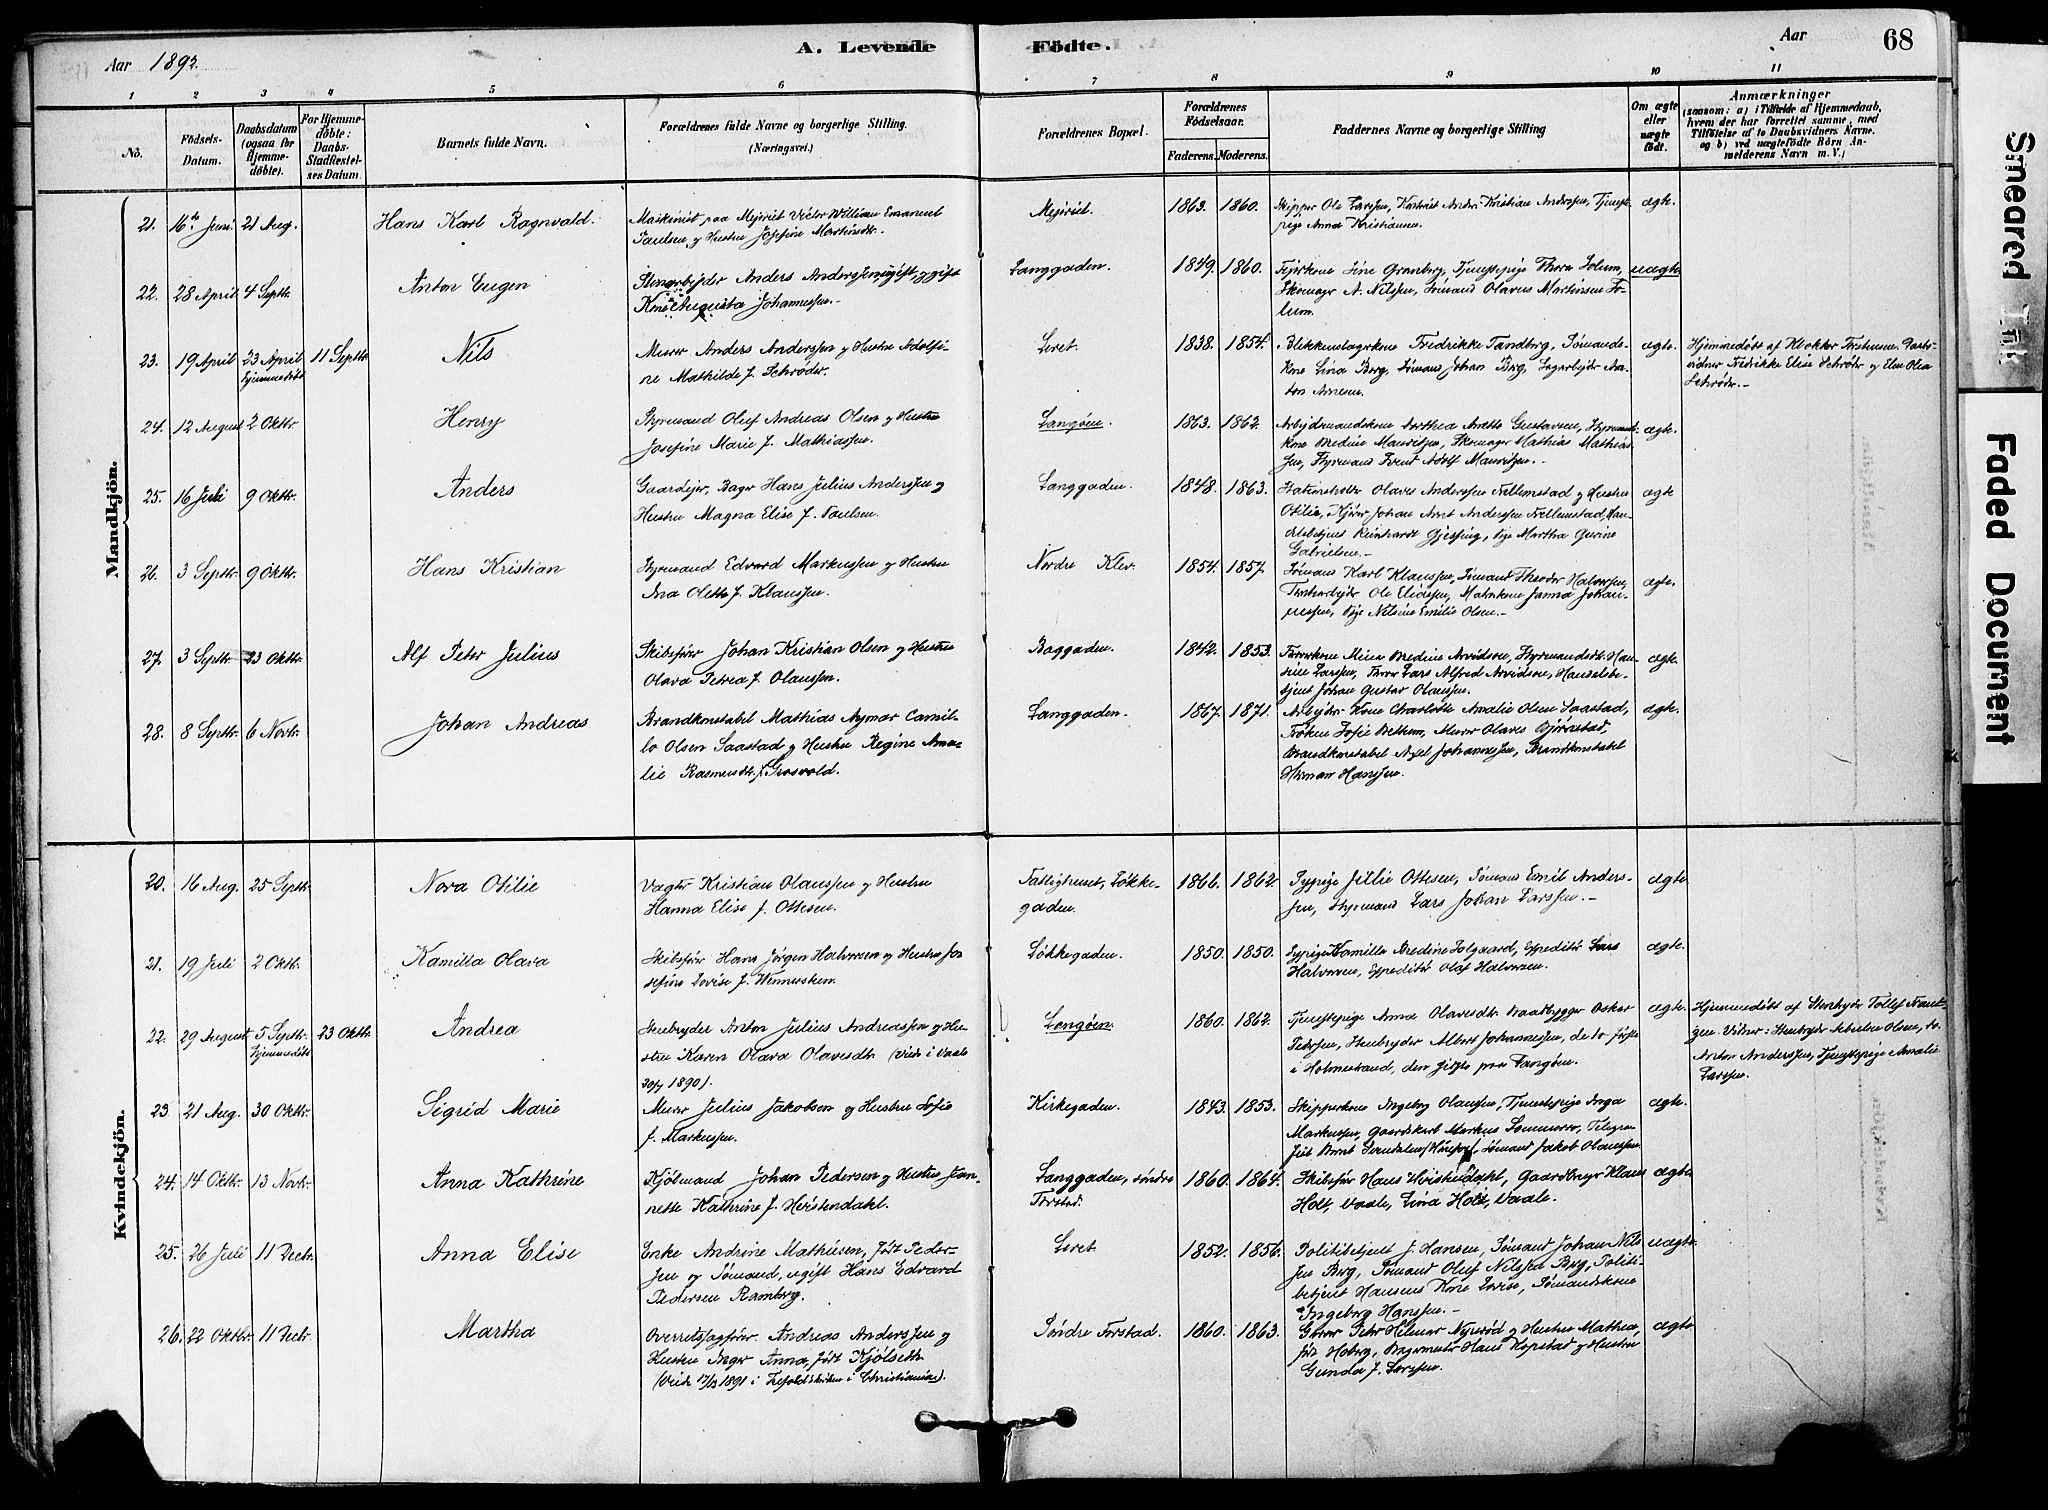 Aar 1892.
A. Levende Födte.
Aar
68
1 2 3 4 5 6 7 8 9 10 11
No.
Födsels-Datum.
Daabsdatum (ogsaa for Hjemmedöbte).
For Hjemmedöbte: Daabs-Stadfæstelses Datum.
Barnets fulde Navn.
Forældrenes fulde Navne og borgerlige Stilling.
(Næringsvei.)
Forældrenes Bopæl.
Forældrenes Födselsaar.
Faderens. Moderens.
Faddernes Navne og borgerlige Stilling
Om ægte eller uægte födt.
Anmærkninger
(saasom: a) i Tilfælde af Hjemmedaab, hvem der har forrettet samme, med Tilföielse af to Daabsvidners Navne, og b) ved uægtefödte Börn Anmelderens Navn m. V.)
Mandkjön.
21. 16de Juni 21 Aug. Hans Karl Ragnvald.
Maskinist paa Mejeriet Victor William Emanuel
Paulsen og Hustru Josefine Martinsdtr.
Mejeriet. 1863. 1860.
Skipper Ole Larssen, Kontorist Andr. Kristian Anderssen, Tjeneste-
pige Anna Kristiansen
ægte.
22. 28 April 4 Septbr. Anton Eugen
Stenarbejder Anders Anderssen, ugift, og gift
Kone Augusta Johannessen.
Langgaden. 1849. 1860.
Fejerkone Line Granberg, Tjenestepige Thora Solum,
Skomager A. Nilssen, Sømand Olavus Martinsen So-
lum.
uægte
23. 19 April 23 April Hjemmedøbt 11 Septbr. Nils
Murer Anders Anderssen og Hustru Adolfi-
ne Mathilde f. Schrøder.
Leret. 1838. 1854.
Blikkenslagerkone Fredrikke Tandberg, Sømands-
kone Lina Berg, Sømand Johan Berg, Sagarbejder An-
ton Arnesen.
ægte.
Hjemmedøbt af Klokker Torstensen. Daabs-
vidner Fredrikke Elise Schrøder og Elen Olea
Schrøder.
24. 12 August 2 Oktbr Henry
Styrmand Oluf Andreas Olsen og Hustru
Josefine Marie f. Mathiassen.
Langøen. 1863. 1862.
Arbejdsmandskone Dorthea Anette Gustavsen, Styrmands-
kone Bredine Mauritzen, Skomager Mathias Mathias-
sen, Styrmand Svend Adolf Mauritzen.
ægte.
25. 16 Juli 9 Oktbr. Anders
Gaardejer, Bager Hans Julius Anderssen og
Hustru Magna Elise f. Paulsen.
Langgaden. 1848. 1863.
Stationsholder Olaves Anderssen Fellemstad og Hustru
Otilie, Kjører Johan Arnt Anderssen Fellemstad, Han-
delsbetjent Reinhardt Gjessing, Pige Martha Gurine
Gabrielsen.
ægte
26. 3 Septbr. 9 Oktbr. Hans Kristian
Styrmand Edvard Markussen og Hustru
Ina Olette f. Klaussen.
Nordre Klev. 1854. 1857.
Sømand Karl Klaussen, Sømand Theodor Halvorsen,
Ole Eliassen, Janna Johan-
nessen, Pige Nilsine Emilie Olsen.
ægte.
27. 3 Septbr. 23 Oktbr. Alf Peter Julius
Skibsfører Johan Kristian Olsen og Hustru
Olava Petrea f. Olaussen.
Baggaden. 1842. 1853.
Mina Bredine Arvidsen, Styrmandsdtr. Han-
sine Larssen, Lars Alfred Arvidsen, Handelsbe-
tjent Johan Gustav Olaussen.
ægte.
28. 8 Septbr. 6 Novbr. Johan Andreas
Brandkonstabel Mathias Aymar Camil-
lo Olsen Saastad og Hustru Regine Ama-
lie Rasmusdtr. f. Grosvold.
Langgaden. 1867. 1871.
Arbejder Kone Charlotte Amalie Olsen Saastad,
Frøken Sofie Bettum, Murer Olaves Bjørnstad,
Brandkonstabel Axel Johannessen, Brandkonstabel
Herman Hanssen.
ægte.
Kvindekjön.
20. 16 Aug. 25 Septbr. Nora Otilie
Vægter Kristian Olaussen og Hustru
Hanna Elise f. Ottesen.
Fattighuset, Løkke-
gaden.
1866. 1862.
Sypige Jullie Ottesen, Sømand Emil Anders-
sen, Styrmand Lars Johan Larssen.
ægte
21. 19 Juli 2 Oktbr. Kamilla Olava
Skibsfører Hans Jørgen Halvorsen og Hustru Jo-
sefine Lovise f. Wennersten.
Løkkegaden. 1850. 1850.
Sypige Kamilla Bredine Solgaard, Expeditør Lars
Halvorsen, Expeditør Olaf Halvorsen.
ægte.
22. 29 August 5 Septbr. Hjemmedøbt 23 Oktbr. Andrea
Stenbryder Anton Julius Andreassen og Hu-
stru Karen Olava Olavesdtr. (Viede i Vaale
1890).
Langøen. 1860. 1862.
Tjenestepige Anna Olavesdtr. Baadbygger Oskar
Petersen, Stenbryder Albert Johannessen, de to første
i Holmestrand, den sidste paa Langøen.
ægte.
Hjemmedøbt af Stenbryder Tollef Frant-
zen. Vidner: Stenbryder Olsen, do.
Anton Anderssen, Tjenestepige Amalie
Larssen.
23 21 Aug. 30 Oktbr. Sigrid Marie
Murer Julius Jakobsen og Hustru Sofie
f. Markussen.
Kirkegaden. 1843. 1853.
Skipperkone Ingeborg Olaussen, Tjenestepige Inga
Markussen, Gaardskarl Markus Sommerro, Telegra-
fist Bernt, Sømand Jakob Olaussen
ægte.
24. 14 Oktbr. 13 Novbr. Anna Kathrine
Kjøbmand Johan Pedersen og Hustru Jan-
nette Kathrine f. Hvistendahl.
Langgaden, søndre
Forstad.
1860. 1864.
Skibsfør Hans Hvistendahl, Gaardbruger Klaus
Holt, Vaale, Lina Holt, Vaale.
ægte
25. 26 Juli 11 Decbr. Anna Elise
Enke Andrine Mathisen, født Peder-
sen og Sømand, ugift Hans Edvard
Pedersen Ramberg.
Leret 1852. 1856.
Politibetjent J. Hansen, Sømand Johan Nils-
sen Berg, Sømand Oluf Nilssen Berg, Politi-
betjent Hansens Kone Lovise, Sømandskone
Ingeborg Hanssen.
uægte
26. 22 Oktbr. 11 Decbr. Martha
Overretssagfører Andreas Anderssen og
Hustru Inger Anna, født Kjølseth
(Viede 17/3 1891 i Trefoldskirken i Christiania).
Søndre Forstad. 1860. 1863.
Peter Helmer Nyerød og Hustru Mathea,
født Hoberg, Bagermester Hans Kopstad og Hustru
Gunda f. Larssen.
ægte
Smeared Ink
Faded Document